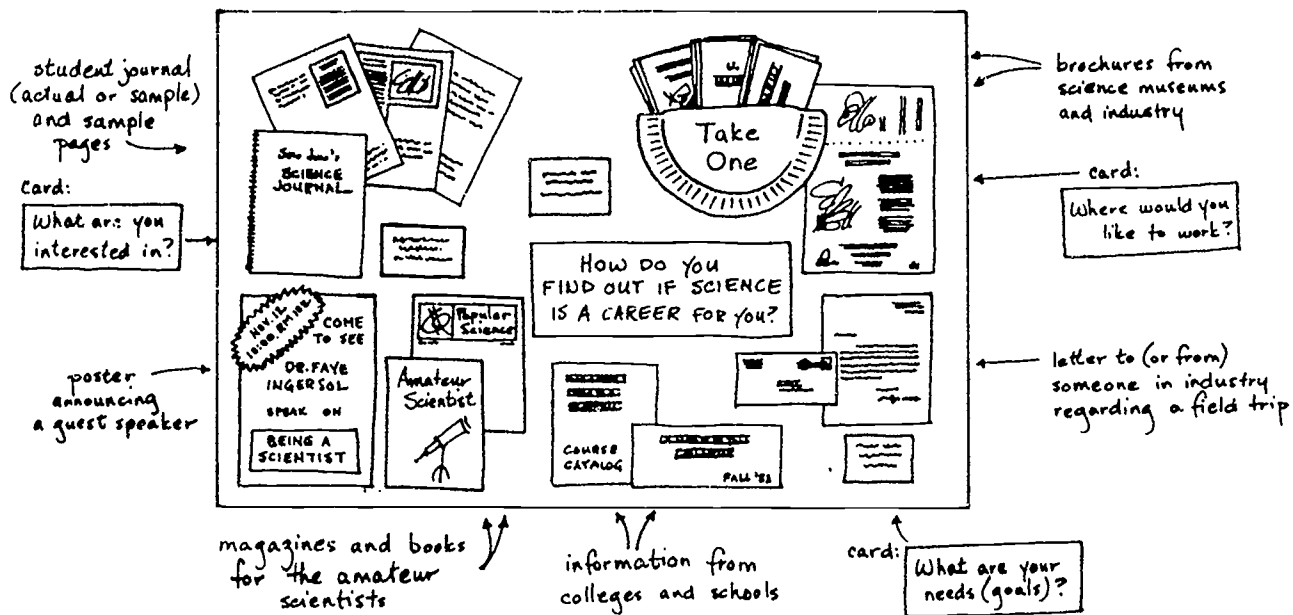 student journal
(actual or sample)
and sample
pages
card:
What are you
interested in?
poster
announcing
a guest speaker
SCIENCE
JOURNAL
Take
One
HOW DO YOU
FIND OUT IF SCIENCE
IS A CAREER FOR YOU?
NOV. 12
10:00, RM 102
COME
TO SEE
DR. FAYE
INGERSOL
SPEAK ON
BEING A
SCIENTIST
Popular
Science
Amateur
Scientist
COURSE
CATALOG
FALL '82
brochures from
science museums
and industry
card:
Where would you
like to work?
letter to (or from)
someone in industry
regarding a field trip
magazines and books
for the amateur
scientists
information from
colleges and schools
card:
What are your
needs (goals)?